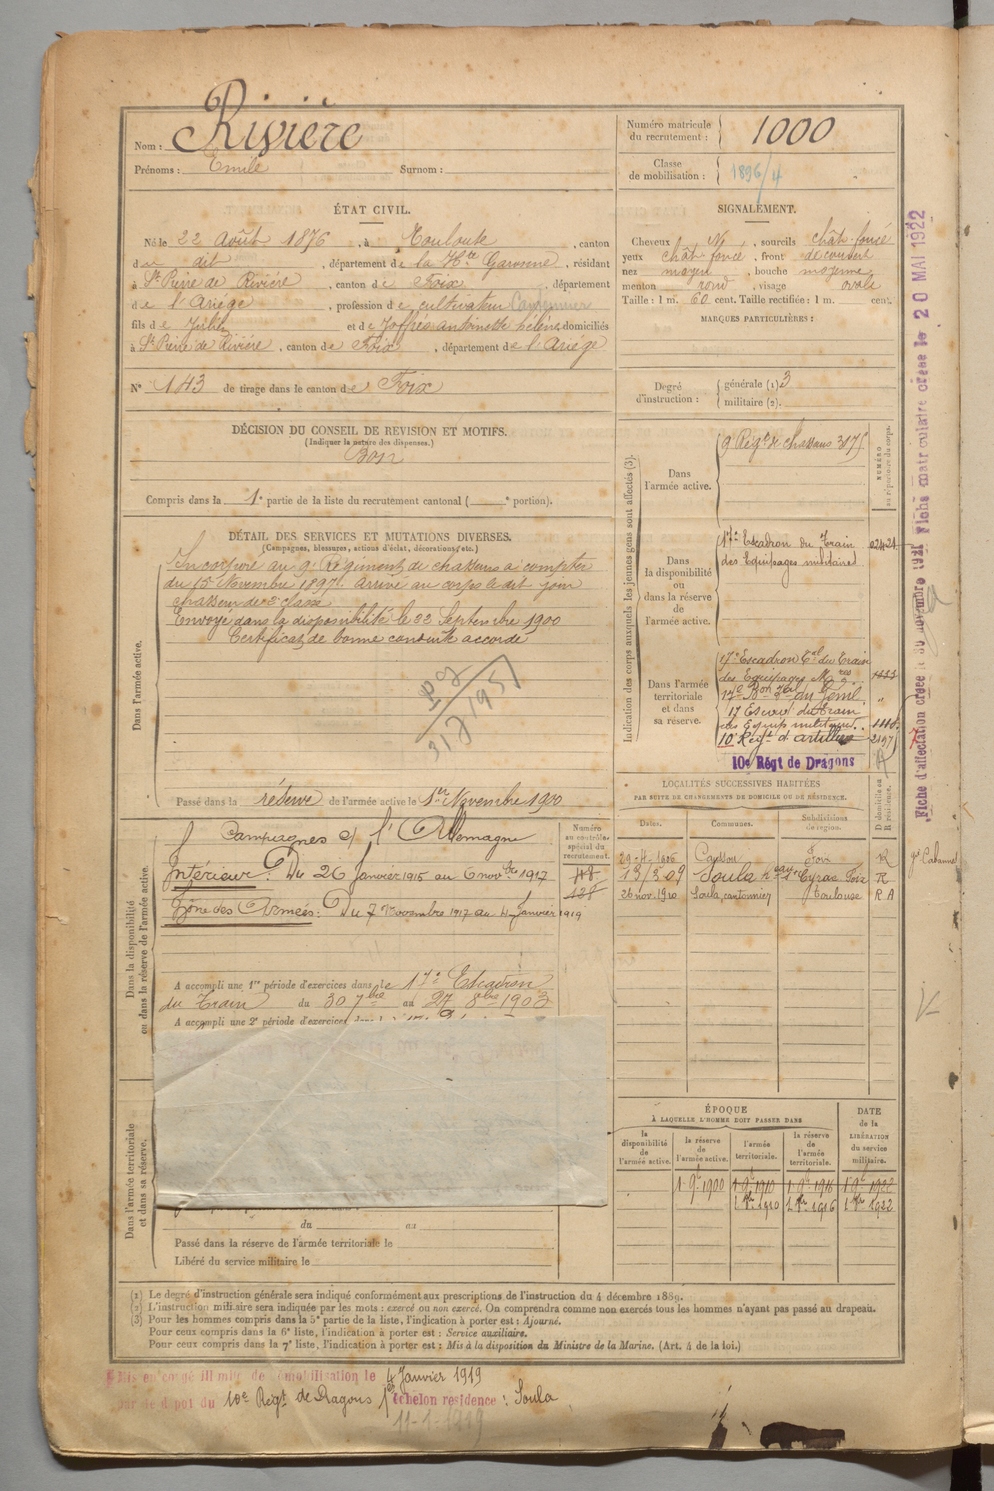 Nom : Rivière
Prénoms : Emile Surnom :
Numéro matricule du recrutement : 1000
Classe de mobilisation : 1896/4
ÉTAT CIVIL.
Né le 22 Août 1876, à Toulouse, canton
du dit, département de la Hte Garonne, résidant
à St Pierre de Rivière, canton de Foix, département
de l'Ariège, profession de cultivateur
fils de Julien et de Joffrès antoinette hélène, domiciliés
à St Pierre de Rivière, canton de Foix, département de l'Ariège
N° 143 de tirage dans le canton de Foix
SIGNALEMENT.
Cheveux N, sourcils chât-foncé
yeux chât foncé, front découvert
nez moyen, bouche moyenne
menton rond, visage ovale
Taille : 1 m. 60 cent. Taille rectifiée : 1 m. cent.
MARQUES PARTICULIÈRES :
Degré d'instruction : générale (1) 3
militaire (2).
DÉCISION DU CONSEIL DE REVISION ET MOTIFS.
(Indiquer la nature des dispenses.)
Bon
Compris dans la 1e partie de la liste du recrutement cantonal ( e portion).
DÉTAIL DES SERVICES ET MUTATIONS DIVERSES.
(Campagnes, blessures, actions d'éclat, décorations, etc.)
Dans l'armée active.
Incorporé au 9e Régiment de chasseurs à compter
du 15 Novembre 1897. Arrivé au corps le dit jour
chasseur de 2e classe
Envoyé dans la disponibilité le 22 Septembre 1900
Certificat de bonne conduite accordé
Passé dans la réserve de l'armée active le 1er Novembre 1900
Indication des corps auxquels les jeunes gens sont affectés (3).
NUMÉRO au répertoire du corps.
Dans l'armée active.
9 Régt de chasseurs 3175
Dans la disponibilité ou dans la réserve de l'armée active.
17e Escadron du Train
des Equipages militaires
Dans l'armée territoriale et dans sa réserve.
17e Escadron Tal du Train
des Equipages Mres 1333
17 Escad du Train
des Equip militaires. 1118
10e Régt d'artillerie 2197
10e Régt de Dragons
LOCALITÉS SUCCESSIVES HABITÉES
PAR SUITE DE CHANGEMENTS DE DOMICILE OU DE RÉSIDENCE.
Dates. Communes. Subdivisions de région. D domicile ou R résidence.
29-4-1906 Foix R
13/3 09 Soula Foix R
26 nov. 1910 Soula, cantonnier Toulouse R A
Dans la disponibilité ou dans la réserve de l'armée active.
Numéro au contrôle spécial du recrutement.
Campagnes c/ l'Allemagne
Intérieur : Du 26 Janvier 1915 au 6 novbre 1917
Zone des Armées : Du 7 Novembre 1917 au 4 Janvier 1919
A accompli une 1re période d'exercices dans le 17e Escadron
du Train du 30 7bre au 27 8bre 1903
A accompli une 2e période d'exercices
Dans l'armée territoriale et dans sa réserve.
du au
Passé dans la réserve de l'armée territoriale le
Libéré du service militaire le
ÉPOQUE
À LAQUELLE L'HOMME DOIT PASSER DANS
DATE de la LIBÉRATION du service militaire.
la disponibilité de l'armée active. la réserve de l'armée active. l'armée territoriale. la réserve de l'armée territoriale.
1 9e 1900 1 9e 1910 1 9e 1916 1 9e 1922
1 Xbre 1910 1 Xbre 1916 1 Xbre 1922
(1) Le degré d'instruction générale sera indiqué conformément aux prescriptions de l'instruction du 4 décembre 1889.
(2) L'instruction militaire sera indiquée par les mots : exercé ou non exercé. On comprendra comme non exercés tous les hommes n'ayant pas passé au drapeau.
(3) Pour les hommes compris dans la 5e partie de la liste, l'indication à porter est : Ajourné.
Pour ceux compris dans la 6e liste, l'indication à porter est : Service auxiliaire.
Pour ceux compris dans la 7e liste, l'indication à porter est : Mis à la disposition du Ministre de la Marine. (Art. 4 de la loi.)
Mis en congé illimité de démobilisation le 4 Janvier 1919
par le dépot du 10e Régt de Dragons 1er échelon résidence : Soula
11-1-1919
Fiche d'affectation créée le 30 novembre 1921 Fiche matriculaire créée le 20 MAI 1922